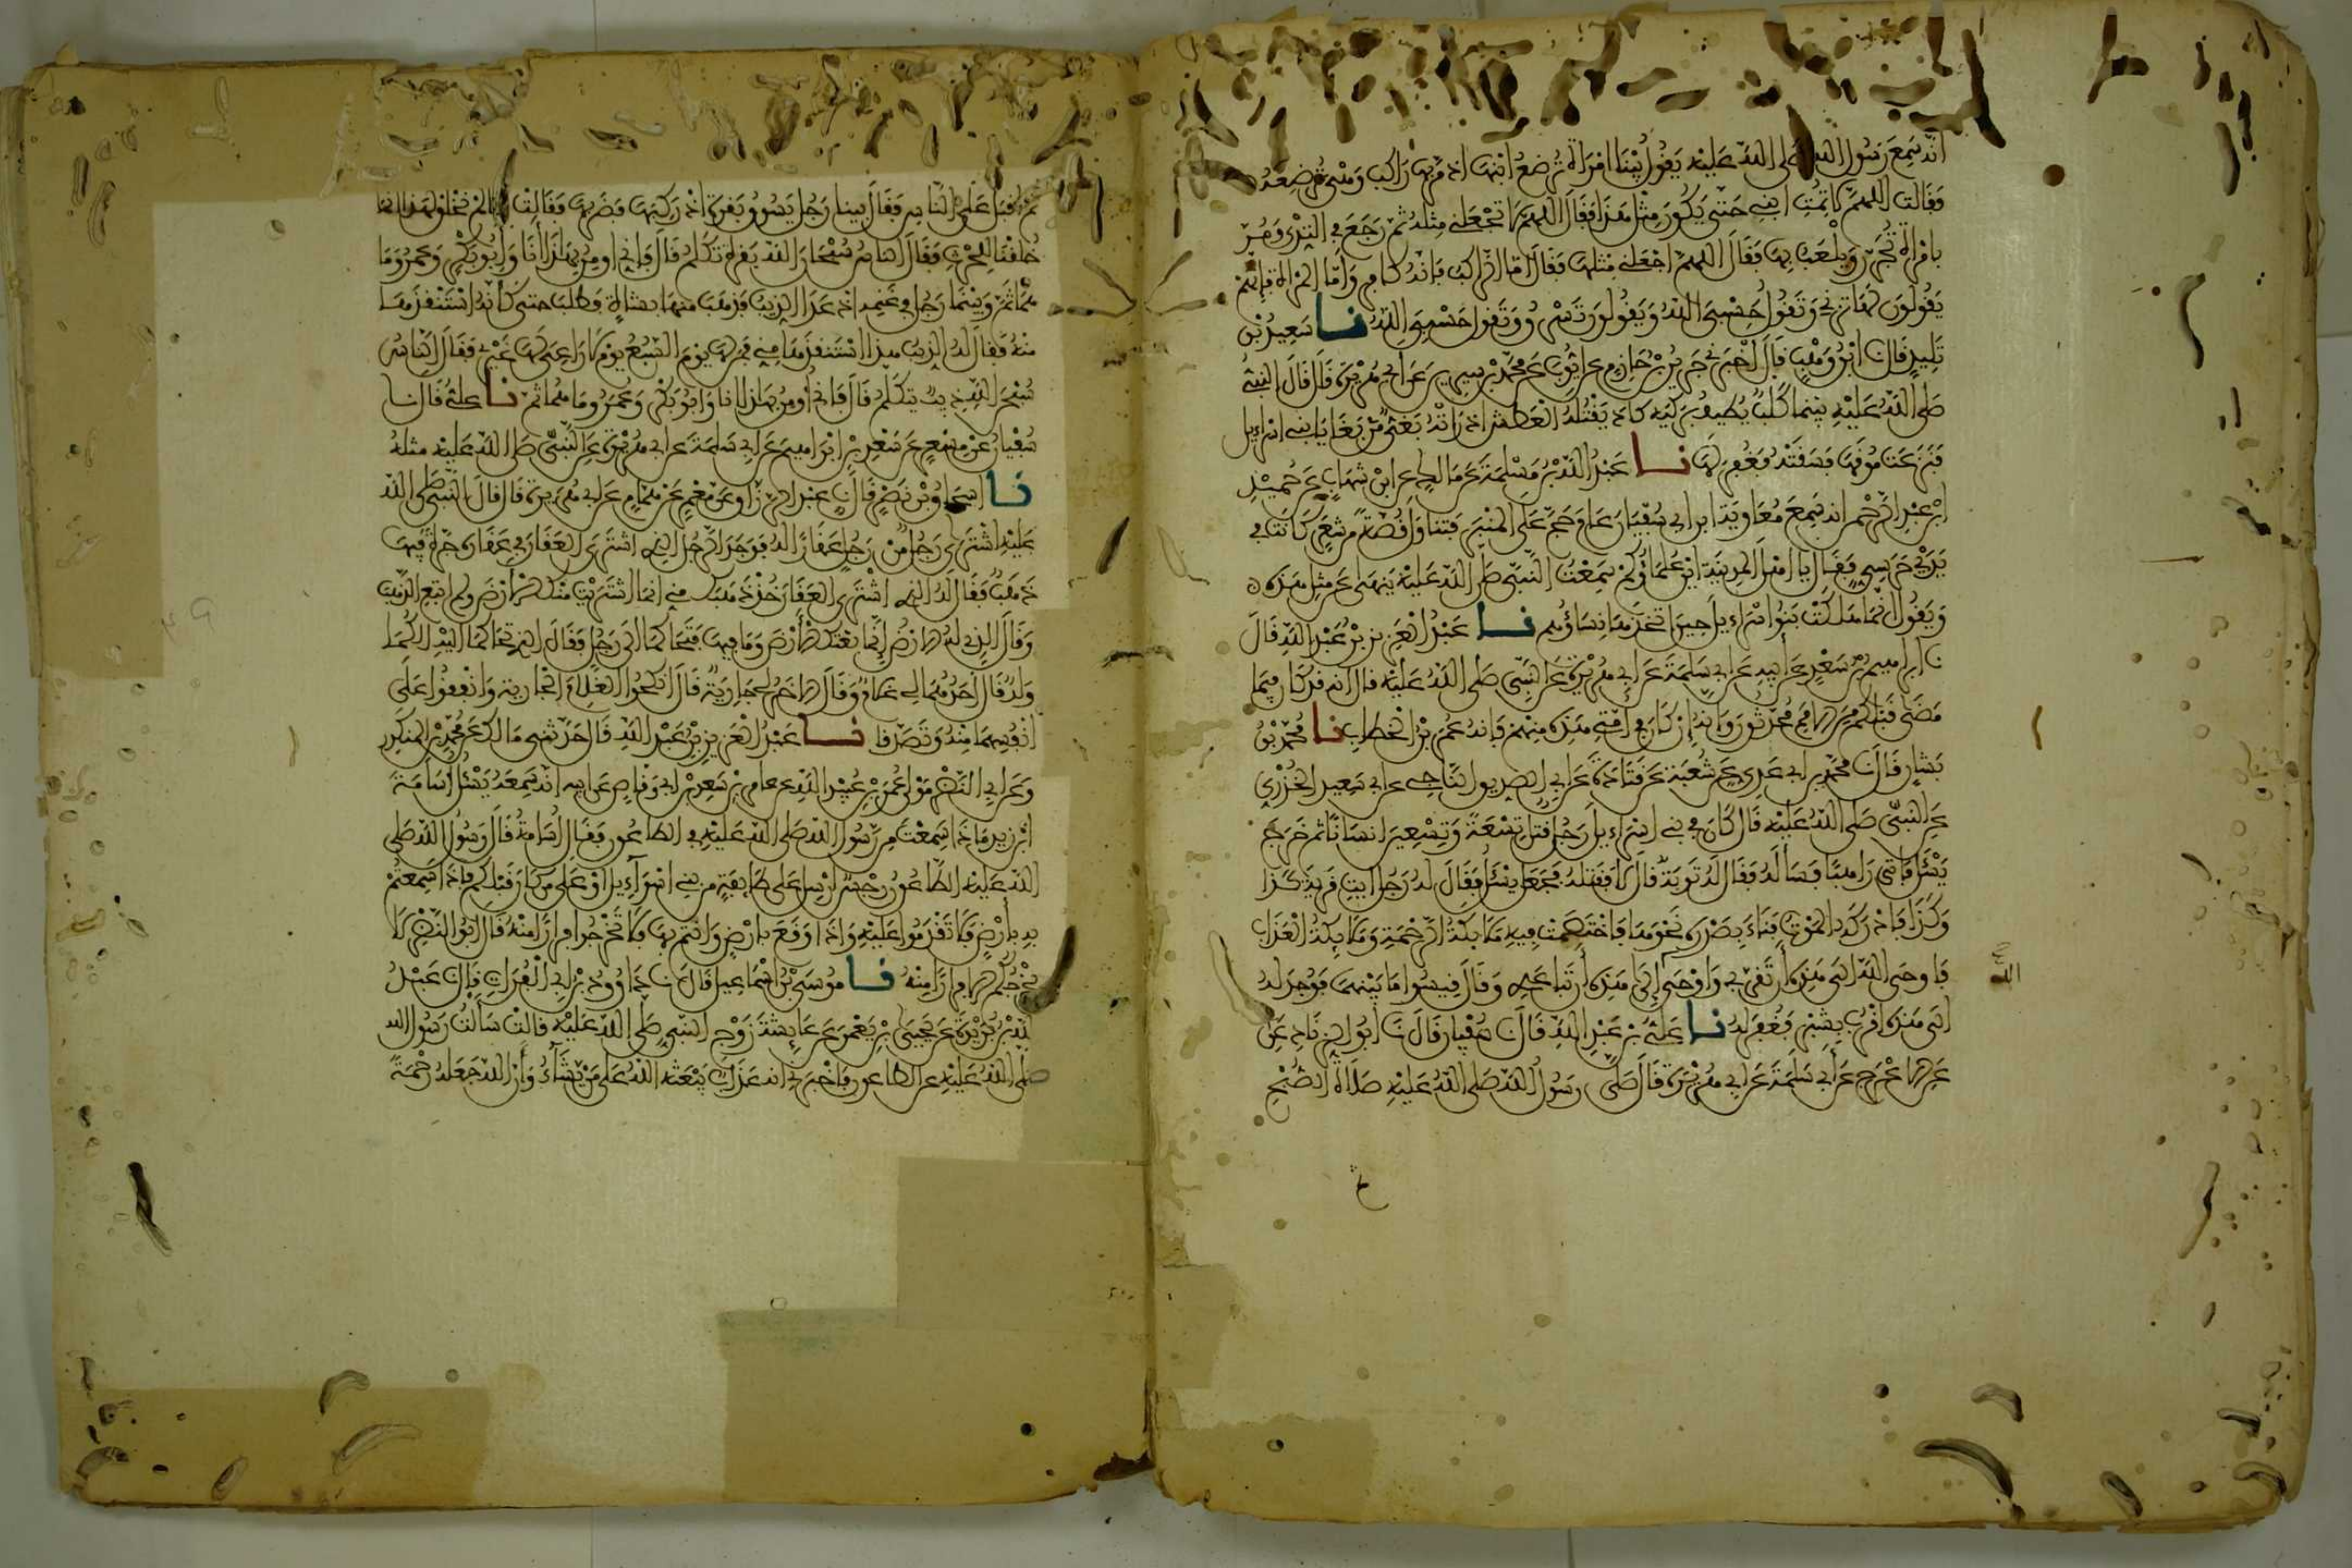 انه سمع رسول الله صلى الله عليه يقول بينا امرأة ترضع ابنها اذ مر بها راكب وهي ترضعه
فقالت اللهم لا تمت ابني حتى يكون مثل هذا فقال اللهم لا تجعلني مثله ثم رجع في الثدي ومر
بامرأة تجرر ويلعب بها فقال اللهم اجعلني مثلها فقال اما الراكب فانه كافر واما المرأة فانهم
يقولون لها تزني وتقول حسبي الله ويقولون تسرق وتقول حسبي الله نا سعيد بن
تليد قال نا ابن وهب قال اخبرني جرير بن حازم عن ايوب عن محمد بن سيرين عن ابي هريرة قال قال النبي
صلى الله عليه بينما كلب يطيف بركية كاد يقتله العطش اذ رأته بغي من بغايا بني اسراءيل
فنزعت موقها فسقته فغفر لها نا عبد الله بن مسلمة عن مالك عن ابن شهاب عن حميد
ابن عبد الرحمن انه سمع معاوية ابن ابي سفيان عام حج على المنبر فتناول قصة من شعر كانت في
يدي حرسي فقال يا اهل المدينة اين علماؤكم سمعت النبي صلى الله عليه ينهى عن مثل هذه
ويقول انما هلكت بنوا اسراءيل حين اتخذها نساؤهم نا عبد العزيز بن عبد الله قال
نا ابراهيم بن سعد عن ابيه عن ابي سلمة عن ابي هريرة عن النبي صلى الله عليه قال انه قد كان فيما
مضى قبلكم من الامم محدثون وانه ان كان في امتي هذه منهم فانه عمر بن الخطاب نا محمد بن
بشار قال نا محمد بن ابي عدي عن شعبة عن قتادة عن ابي الصديق الناجي عن ابي سعيد الخدري
عن النبي صلى الله عليه قال كان في بني اسراءيل رجل قتل تسعة وتسعين انسانا ثم خرج
يسئل فاتى راهبا فسأله فقال له توبة قال لا فقتله فجعل يسئل فقال له رجل ايت قرية كذا
وكذا فادركه الموت فناء بصدره نحوها فاختصمت فيه ملائكة الرحمة وملائكة العذاب
فاوحى الله الى هذه ان تقربي واوحى الى هذه ان تباعدي وقال قيسوا ما بينهما فوجد له
الى هذه اقرب بشبر فغفر له نا علي بن عبد الله قال نا سفيان قال نا ابو الزناد عن
عن الاعرج عن ابي سلمة عن ابي هريرة قال صلى رسول الله صلى الله عليه صلاة الصبح
الله
ثم اقبل على الناس فقال بينا رجل يسوق بقرة اذ ركبها فضربها فقالت انا لم نخلق لهذا انما
خلقنا للحرث فقال الناس سبحان الله بقرة تكلم قال فاني اومن بهذا انا وابو بكر وعمر وما
هما ثم وبينما رجل في غنمه اذ عدا الذيب فذهب منها بشاة فطلب حتى كانه استنقذها
منه فقال له الذيب هذا استنقذها مني فمن لها يوم السبع يوم لا راعي لها غيري فقال الناس
سبحن الله ذيب يتكلم قال فاني اومن بهذا انا وابو بكر وعمر وما هما ثم نا علي قال نا
سفيان عن مسعر عن سعد بن ابراهيم عن ابي سلمة عن ابي هريرة عن النبي صلى الله عليه مثله
نا اسحاق بن نصر قال نا عبد الرزاق عن معمر عن همام عن ابي هريرة قال قال النبي صلى الله
عليه اشترى رجل من رجل عقارا له فوجد الرجل الذي اشترى العقار في عقاره جرة فيها
ذهب فقال له الذي اشترى العقار خذ ذهبك مني انما اشتريت منك الارض ولم ابتع الذهب
وقال الذي له الارض انما بعتك الارض وما فيها فتحاكما الى رجل فقال الذي تحاكما اليه الكما
ولد قال احدهما لي غلام وقال الاخر لي جارية قال انكحوا الغلام الجارية وانفقوا على
انفسهما منه وتصدقا نا عبد العزيز بن عبد الله قال حدثني مالك عن محمد بن المنكدر
وعن ابي النضر مولى عمر بن عبيد الله عن عامر بن سعد بن ابي وقاص عن ابيه انه سمعه يسئل اسامة
ابن زيد ماذا سمعت من رسول الله صلى الله عليه في الطاعون فقال اسامة قال رسول الله صلى
الله عليه الطاعون رجس ارسل على طايفة من بني اسراءيل او على من كان قبلكم فاذا سمعتم
به بارض فلا تقدموا عليه واذا وقع بارض وانتم بها فلا تخرجوا فرارا منه قال ابو النضر لا
يخرجكم الا فرارا منه نا موسى بن اسماعيل قال نا داوود بن ابي الفرات قال نا عبد
الله بن بريدة عن يحيى بن يعمر عن عايشة زوج النبي صلى الله عليه قالت سألت رسول الله
صلى الله عليه عن الطاعون فاخبرني انه عذاب يبعثه الله على من يشاء وان الله جعله رحمة